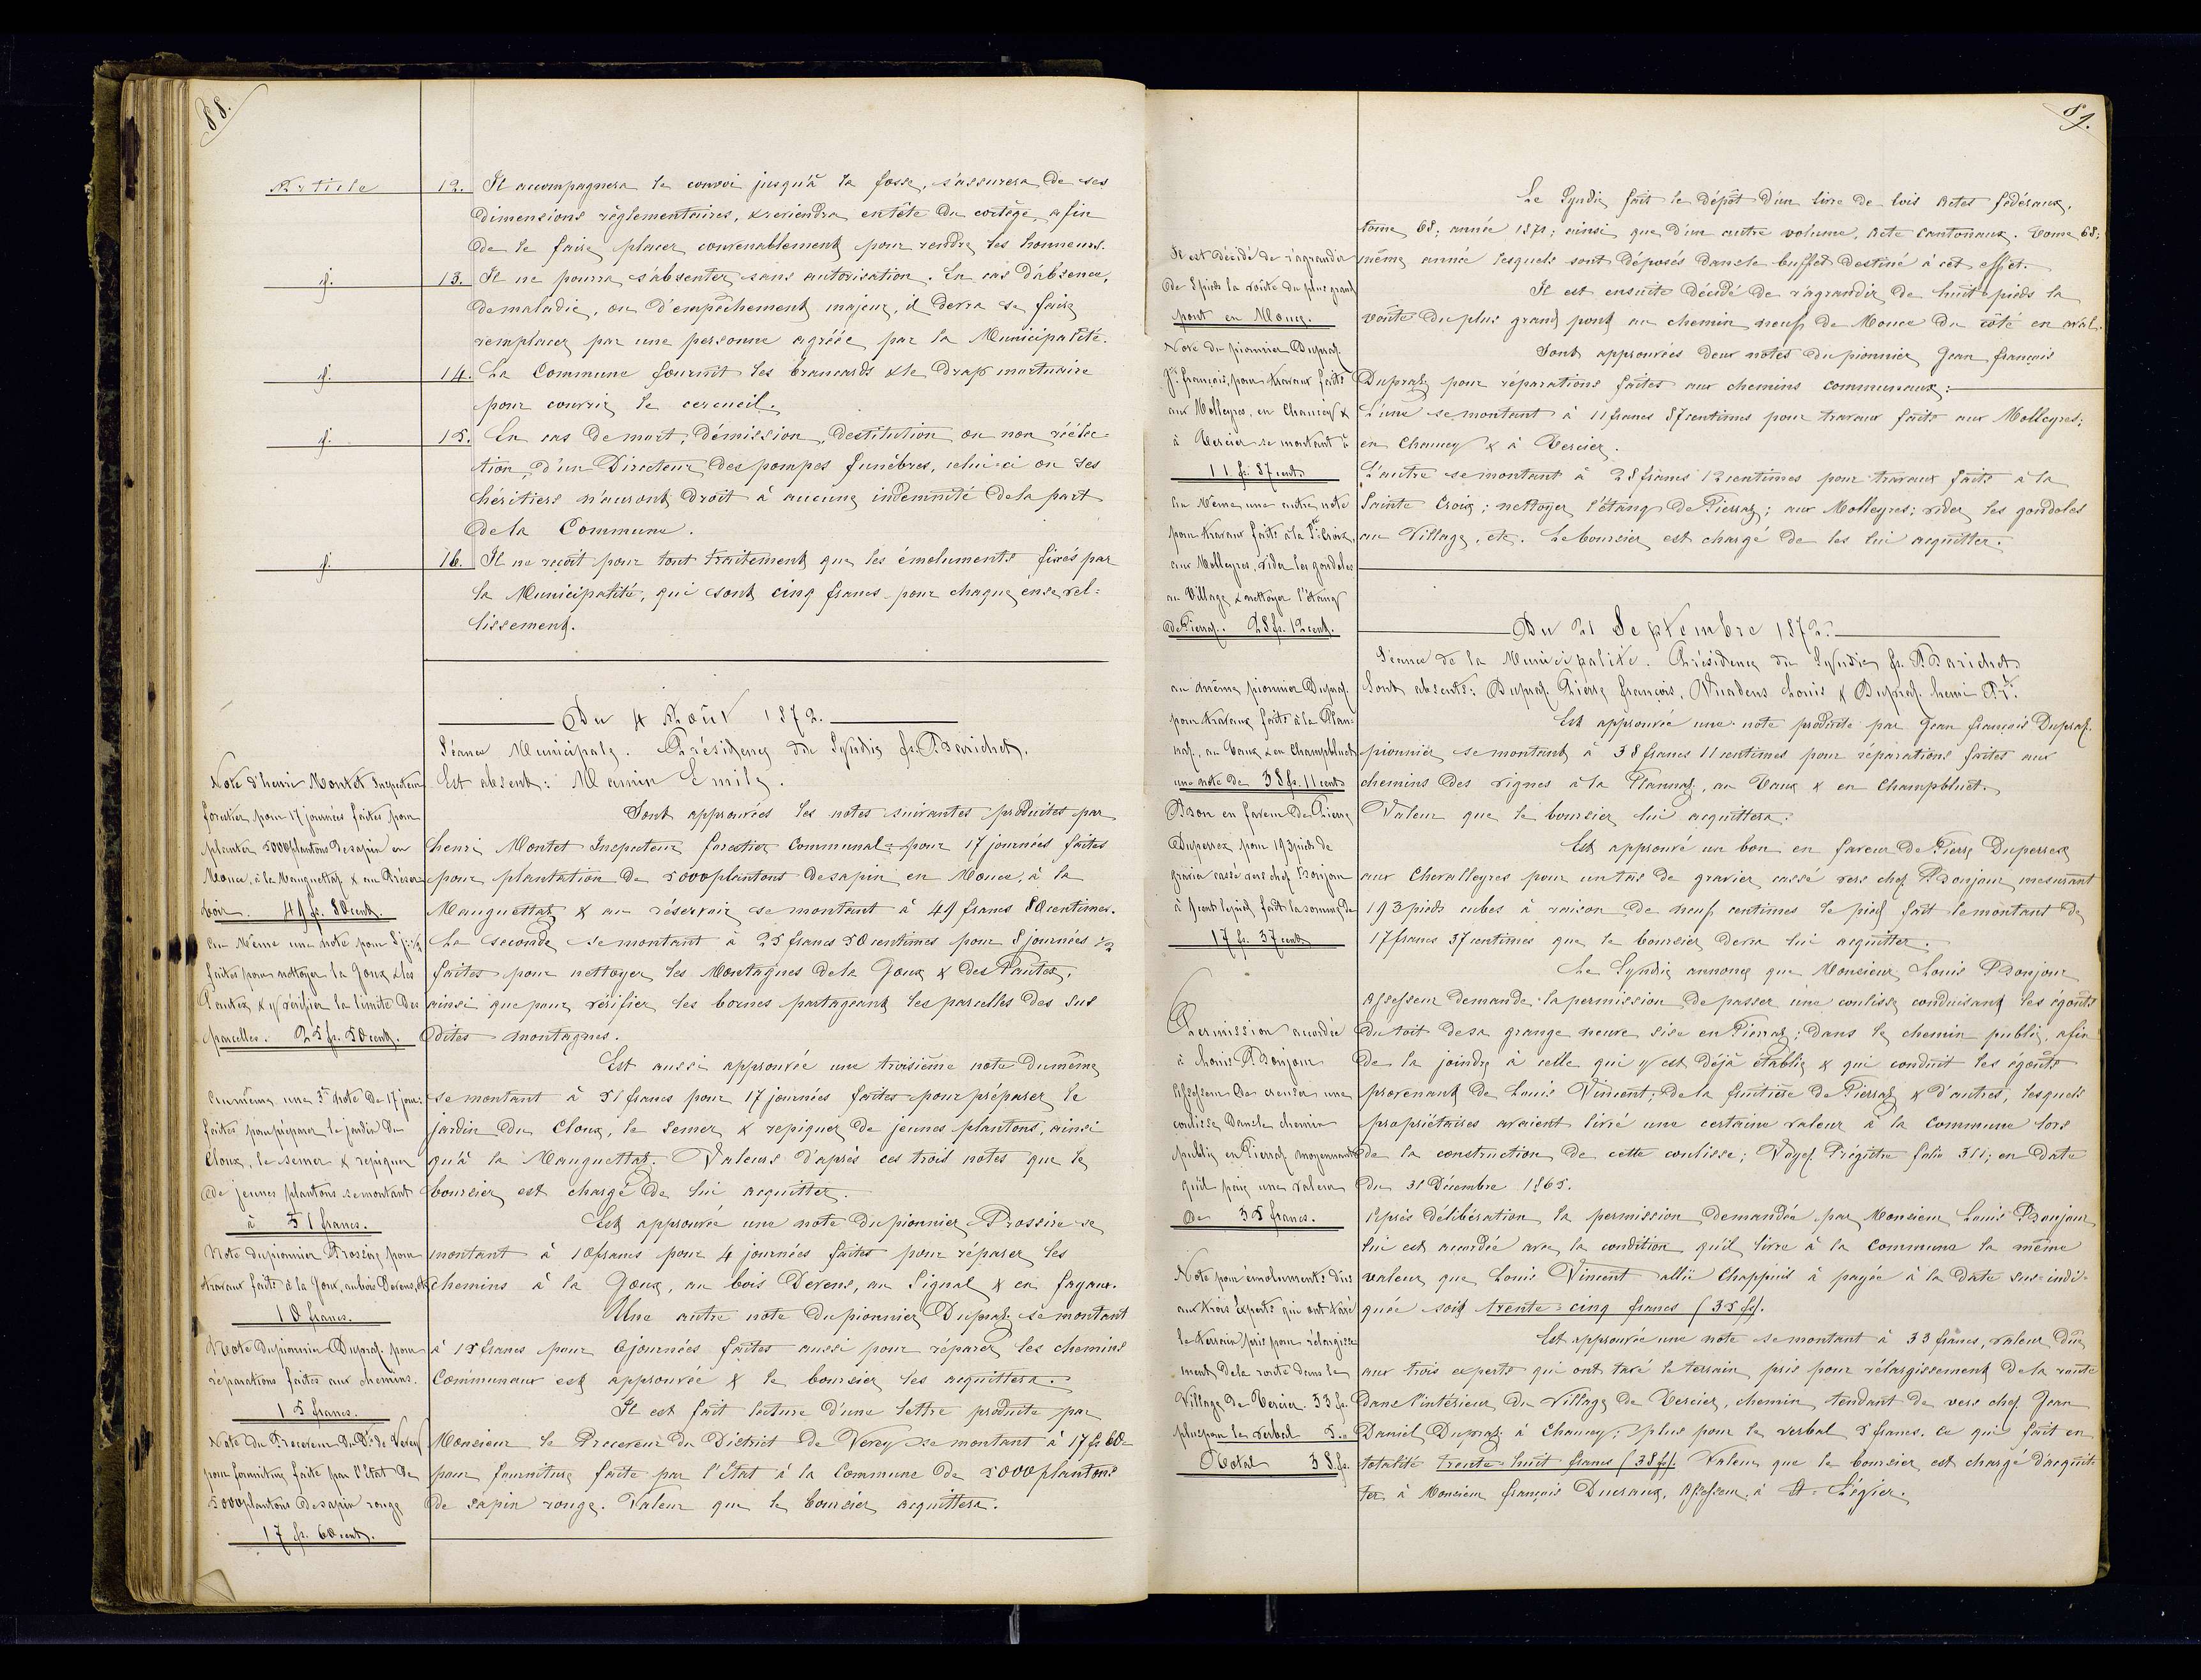 88.
Article 12. Il accompagnera le convoi jusqu'à la fosse, s'assurera de ses
dimensions règlementaires, & reviendra en tête du cortège, afin
de le faire placer convenablement pour rendre les honneurs.
id. 13. Il ne pourra s'absenter sans autorisation. En cas d'absence,
de maladie, ou d'empêchement majeur, il devra se faire
remplacer par une personne agréée par la Municipalité.
id. 14. La Commune fournit les brancards & le drap mortuaire
pour couvrir le cercueil.
id. 15. En cas de mort, démission, destitution ou non réélec=
tion d'un Directeur des pompes funèbres, celui-ci ou ses
héritiers n'auront droit à aucune indemnité de la part
de la Commune.
id. 16. Il ne reçoit pour tout traitement que les émoluments fixés par
la Municipalité, qui sont cinq francs pour chaque ensevel=
lissement.
Du 4 Août 1872.
Séance Municipale. Présidence du Syndic fs. Perichet.
Est absent: Mamin Emile.
Sont approuvées les notes suivantes produites par
henri Montet Inspecteur forestier Communal: pour 17 journées faites
pour plantation de 5000 plantons de sapin en Mouce, à la
Mauguettaz & au réservoir se montant à 49 francs 80 centimes.
La seconde se montant à 25 francs 50 centimes pour 8 journées 1/2
faites pour nettoyer les Montagnes de la Joux & des Pautex,
ainsi que pour vérifier les bornes partageant les parcelles des sus
dites montagnes.
Est aussi approuvée une troisième note du même
se montant à 51 francs pour 17 journées faites pour préparer le
jardin du Cloux, le semer & repiquer de jeunes plantons, ainsi
qu'à la Mauguettaz. Valeurs d'après ces trois notes que le
boursier est chargé de lui acquitter.
Est approuvée une note du pionnier Brossire se
montant à 10 francs pour 4 journées faites pour réparer les
chemins à la Joux, au bois Devens, au Signal & en fagaux.
Une autre note du pionnier Dupraz se montant
à 15 francs pour 6 journées faites aussi pour réparer les chemins
Communaux est approuvée & le boursier les acquittera.
Il est fait lecture d'une lettre produite par
Monsieur le Receveur du District de Vevey se montant à 17 fs 60=
pour fourniture faite par l'Etat à la Commune de 5000 plantons
de sapin rouge. Valeur que le boursier acquittera.
Note d'henri Montet Inspecteur
forestier pour 17 journées faites pour
planter 5000 plantons de sapin en
Mouce, à la Mauguettaz & au Réser=
voir. 49 fs. 80 cent.
Au Même une note pour 8 j. 1/2
faites pour nettoyer la Joux & les
Pautex & y vérifier la limite des
parcelles. 25 fs. 50 cent.
Au même une 3e note de 17 jour:
faites pour préparer le jardin du
Cloux, le semer & repiquer
de jeunes plantons se montant
à 51 francs.
Note du pionnier Brossire pour
travaux faits à la Joux, au bois Devens, etc
10 francs.
Note du pionnier Dupraz pour
réparations faites aux chemins.
15 francs.
Note du Receveur du Dt. de Vevey
pour fourniture faite par l'Etat de
5000 plantons de sapin rouge
17 fs. 60 cent.
89.
Le Syndic fait le dépôt d'un livre de lois Actes fédéraux,
tome 68; année 1871; ainsi que d'un autre volume, Acte Cantonaux. Tome 68;
même année lesquels sont déposés dans le buffet destiné à cet effet.
Il est ensuite décidé de r'agrandir de huit pieds la
voûte du plus grand pont au chemin neuf de Mouce du côté en aval.
Sont approuvées deux notes du pionnier Jean françois
Dupraz pour réparations faites aux chemins communaux:
L'une se montant à 11 francs 87 centimes pour travaux faits aux Molleyres;
en Chaucey & à Tercier.
L'autre se montant à 28 francs 12 centimes pour travaux faits à la
Sainte Croix; nettoyer l'étang de Pierraz; aux Molleyres; vider les gondoles
au Village, etc. Le boursier est chargé de les lui acquitter.
Du 21 Septembre 1872.
Séance de la Municipalité. Présidence du Syndic fs. Perichet
Sont absents: Dupraz Pierre françois, Vuadens Louis & Dupraz henri
Est approuvée une note produite par Jean françois Dupraz
pionnier se montant à 38 francs 11 centimes pour réparations faites aux
chemins des vignes à la Plannaz, au Vaux & en Champbluet.
Valeur que le boursier lui acquittera.
Est approuvé un bon en faveur de Pierre Duperrex
aux Chevalleyres pour un tas de gravier cassé vers chez Bonjour mesurant
193 pieds cubes à raison de neuf centimes le pied fait le montant de
17 francs 37 centimes que le boursier devra lui acquitter.
Le Syndic annonce que Monsieur Louis Bonjour
Assesseur demande la permission de passer une coulisse conduisant les égouts
du toit de sa grange neuve sise en Pierraz; dans le chemin public, afin
de la joindre à celle qui y est déjà établie & qui conduit les égouts
provenant de Louis Vincent; de la fruitière de Pierraz & d'autres; lesquels
propriétaires avaient livré une certaine valeur à la Commune lors
de la construction de cette coulisse; Voyez Régistre folio 311; en date
du 31 Décembre 1865.
Après délibération la permission demandée par Monsieur Louis Bonjour
lui est accordée avec la condition qu'il livre à la Commune la même
valeur que Louis Vincent allié Chappuis à payée à la date sus-indi=
quée soit trente-cinq francs (35 fs).
Est approuvée une note se montant à 33 francs, valeur due
aux trois experts qui ont taxé le terrain pris pour r'élargissement de la route
dans l'intérieur du Village de Tercier, chemin tendant de vers chez Jean
Daniel Dupraz à Chaucey; plus pour le verbal 5 francs. ce qui fait en
totalité trente-huit francs (38 fs). Valeur que le boursier est chargé d'acquit
ter à Monsieur françois Ducraux, Assesseur à St. Légier.
Il est décidé de r'agrandir
de 8 pieds la voûte du plus grand
pont en Mouce.
Note du pionnier Dupraz
Jn. françois, pour travaux faits
aux Molleyres, en Chaucey &
à Tercier se montant à
11 fs. 87 cent.
Au Même une autre note
pour travaux faits à la Ste. Croix,
aux Molleyres, vider les gondoles
au Village & nettoyer l'étang
de Pierraz. 28 fs. 12 cent.
au même pionnier Dupraz
pour travaux faits à la Plan=
naz, au Vaux & en Champbluet
une note de 38 fs. 11 cent.
Bon en faveur de Pierre
Duperrex pour 193 pieds de
gravier cassé vers chez Bonjour
à 9 cent le pied fait la somme de
17 fs. 37 cent.
Permission accordée
à Louis Bonjour
Assesseur de creuser une
coulisse dans le chemin
public en Pierraz moyennant
qu'il paie une valeur
de 35 francs.
Note pour émoluments dus
aux trois Experts qui ont taxé
le terrain pris pour r'élargisse
ment de la route dans le
Village de Tercier. 33 fs.
plus pour le verbal 5.
Total 38 fs.